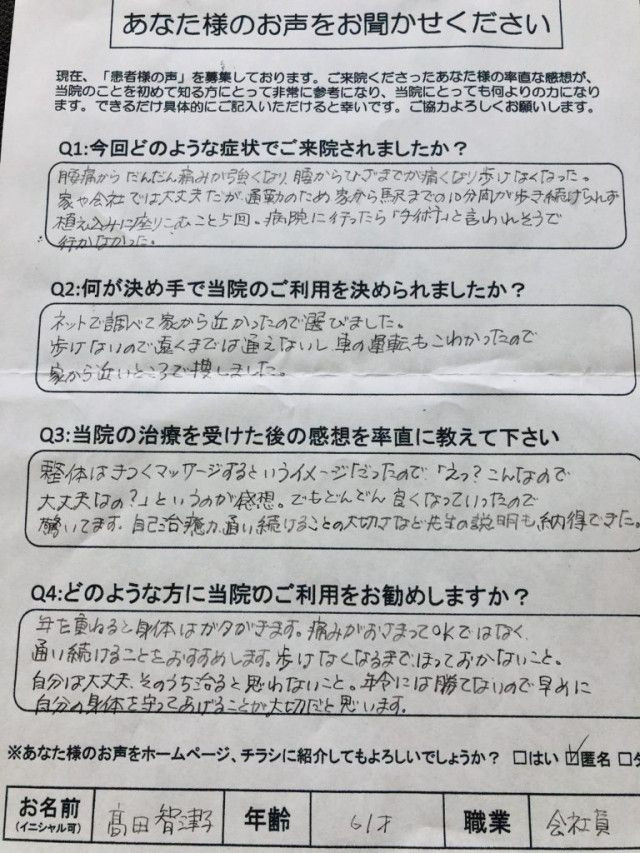 あなた様のお声をお聞かせください
現在、「患者様の声」を募集しております。ご来院くださったあなた様の率直な感想が、
当院のことを初めて知る方にとって非常に参考になり、当院にとっても何よりの力になり
ます。できるだけ具体的にご記入いただけると幸いです。ご協力よろしくお願いします。
Q1:今回どのような症状でご来院されましたか？
腰痛からだんだん痛みが強くなり、腰からひざまでが痛くなり歩けなくなった。
家や会社では大丈夫だが、通勤のため家から駅までの10分間が歩き続けられず
植え込みに座りこむこと5回。病院に行ったら「手術」と言われそうで
行かなかった。
Q2:何が決め手で当院のご利用を決められましたか？
ネットで調べて家から近かったので選びました。
歩けないので遠くまでは通えないし、車の運転もこわかったので
家から近いところで探しました。
Q3:当院の治療を受けた後の感想を率直に教えて下さい
整体はきつくマッサージするというイメージだったので、「えっ？こんなので
大丈夫なの？」というのが感想。でもどんどん良くなっていったので
驚いてます。自己治癒力、通い続けることの大切さなど先生の説明も納得できた。
Q4:どのような方に当院のご利用をお勧めしますか？
年を重ねると身体はガタがきます。痛みがおさまってOKではなく、
通い続けることをおすすめします。歩けなくなるまでほっておかないこと。
自分は大丈夫、そのうち治ると思わないこと。年令には勝てないので早めに
自分の身体を守ってあげることが大切だと思います。
※あなた様のお声をホームページ、チラシに紹介してもよろしいでしょうか？ □はい ☑匿名 □
お名前 (イニシャル可) 髙田 智津子 年齢 61才 職業 会社員